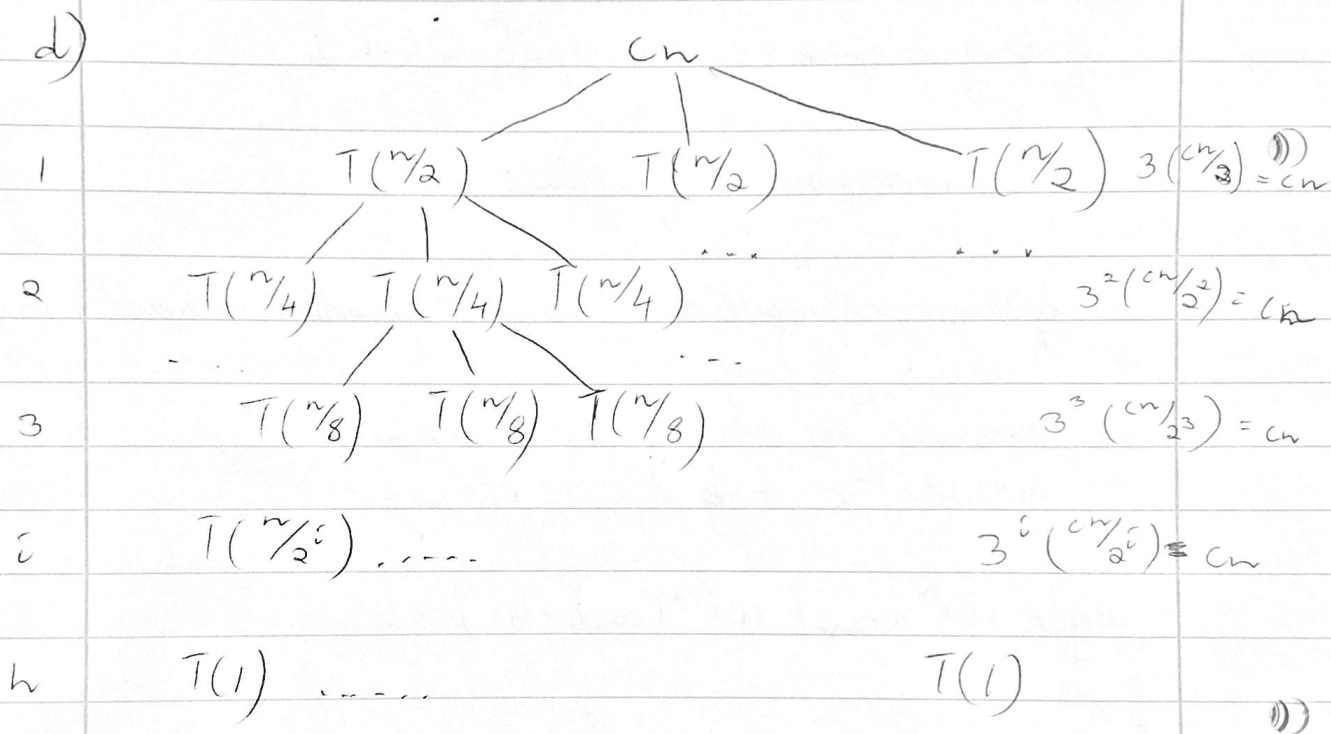 d) cn
1 T(n/2) T(n/2) T(n/2) 3(cn/2) = cn
... ...
2 T(n/4) T(n/4) T(n/4) 3²(cn/2²) = cn
- .. ---
3 T(n/8) T(n/8) T(n/8) 3³(cn/2³) = cn
i T(n/2ⁱ) ...... 3ⁱ(cn/2ⁱ) = cn
h T(1) ...... T(1)